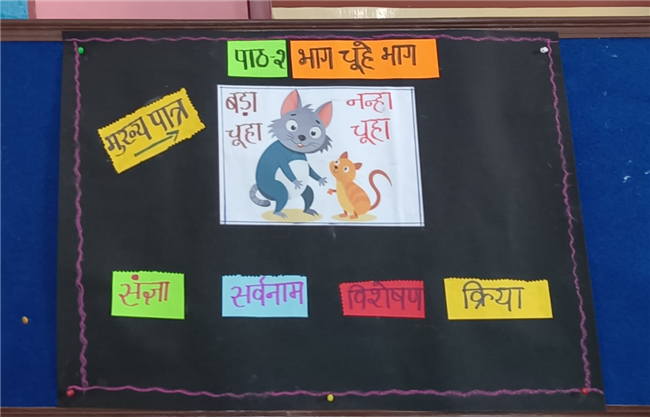 पाठ-२ भाग चूहे भाग
मुख्य पात्र
बड़ा चूहा
नन्हा चूहा
संज्ञा
सर्वनाम
विशेषण
क्रिया